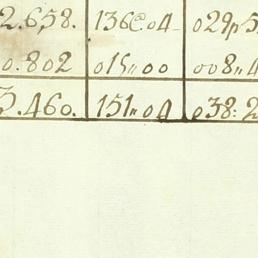 2.658. 136@04 029n5
0.802 015n00 008n4
3.460. 151n04 038:2